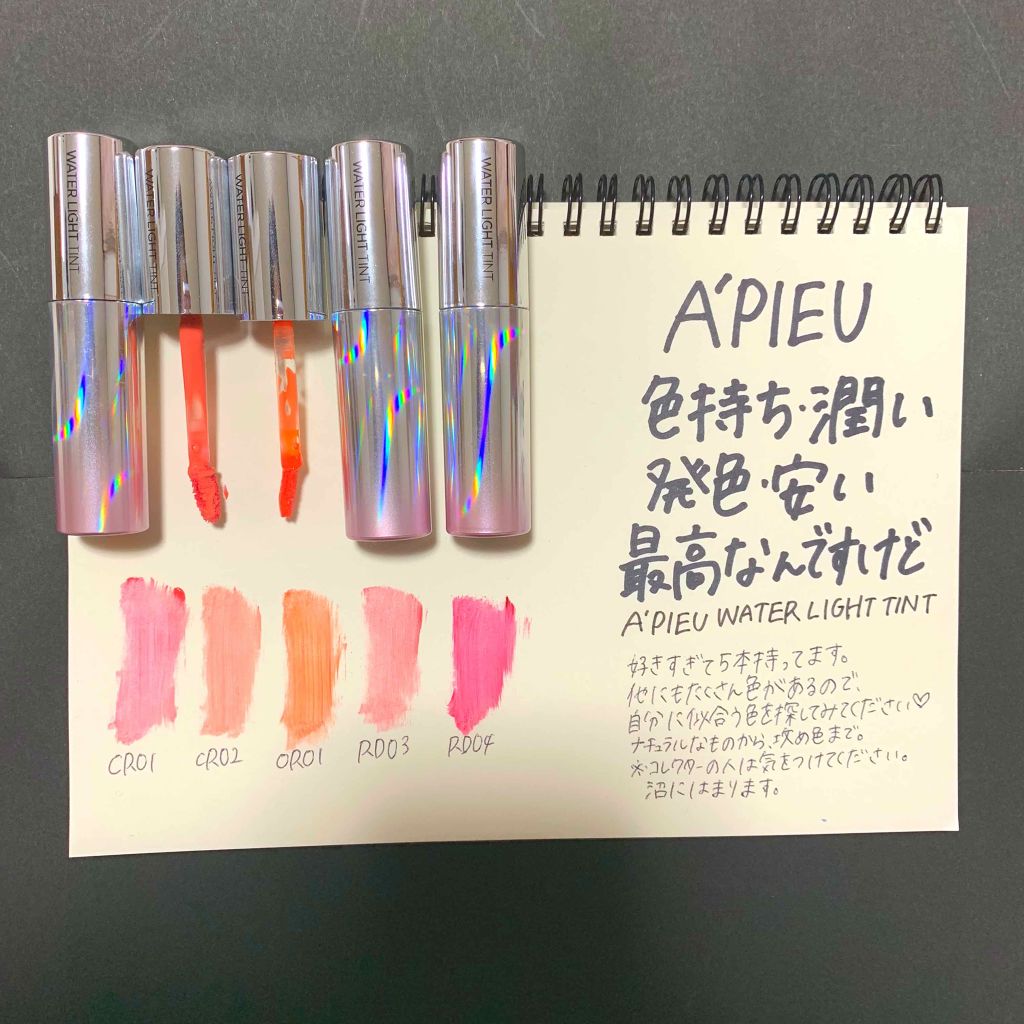 WATER LIGHT TINT
WATER LIGHT TINT
WATER LIGHT TINT
WATER LIGHT TINT
WATER LIGHT TINT
A'PIEU
色持ち・潤い
発色・安い
最高なんですけど
A'PIEU WATER LIGHT TINT
好きすぎて5本持ってます。
他にもたくさん色があるので、
自分に似合う色を探してみてください♡
ナチュラルなものから、攻め色まで。
※コレクターの人は気をつけてください。
沼にはまります。
CR01 CR02 OR01 RD03 RD04